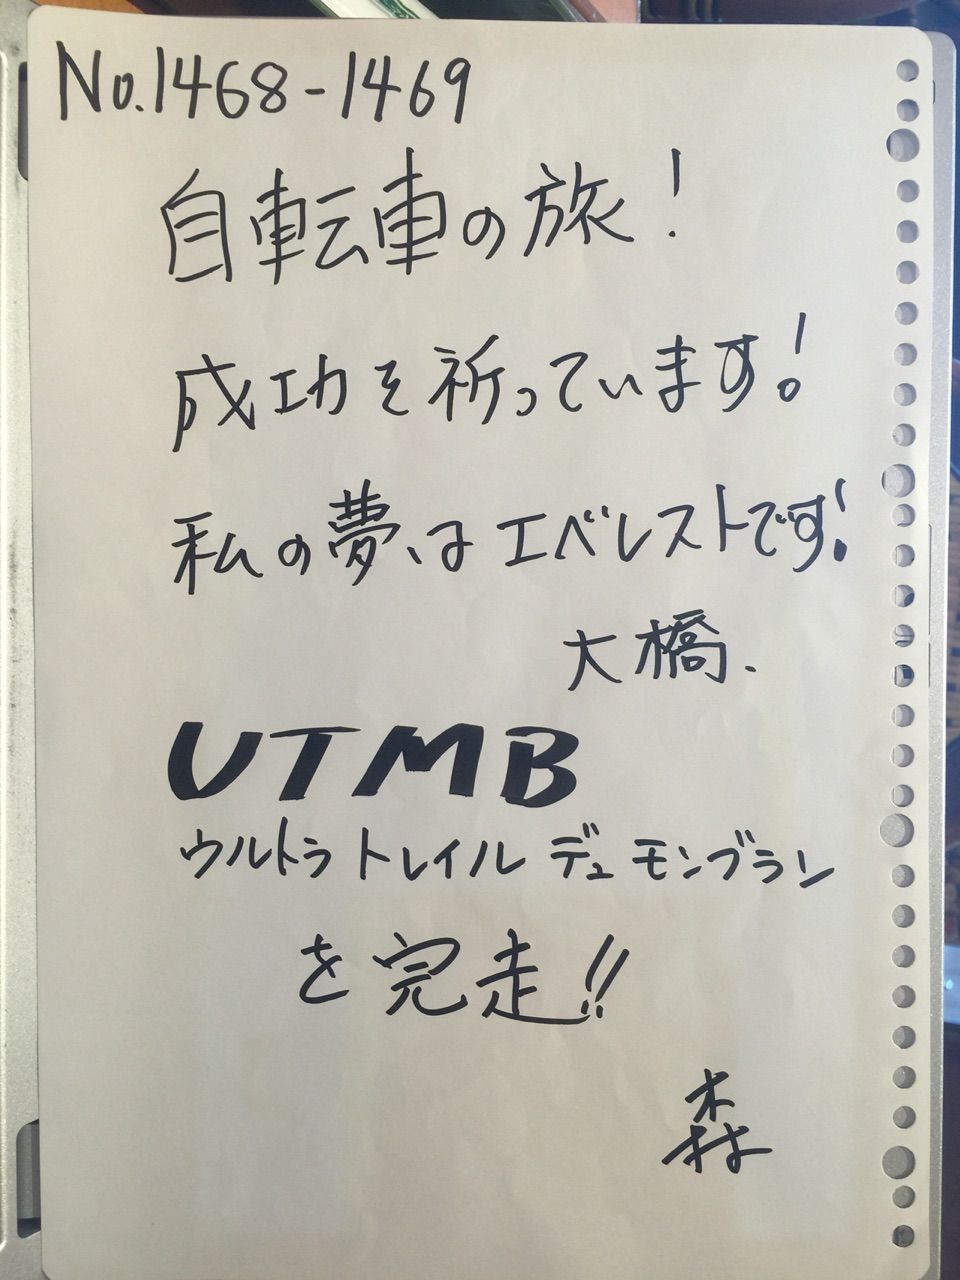 No.1468-1469
自転車の旅!
成功を祈っています!
私の夢はエベレストです!
大橋.
UTMB
ウルトラトレイル デュ モンブラン
を完走!!
森